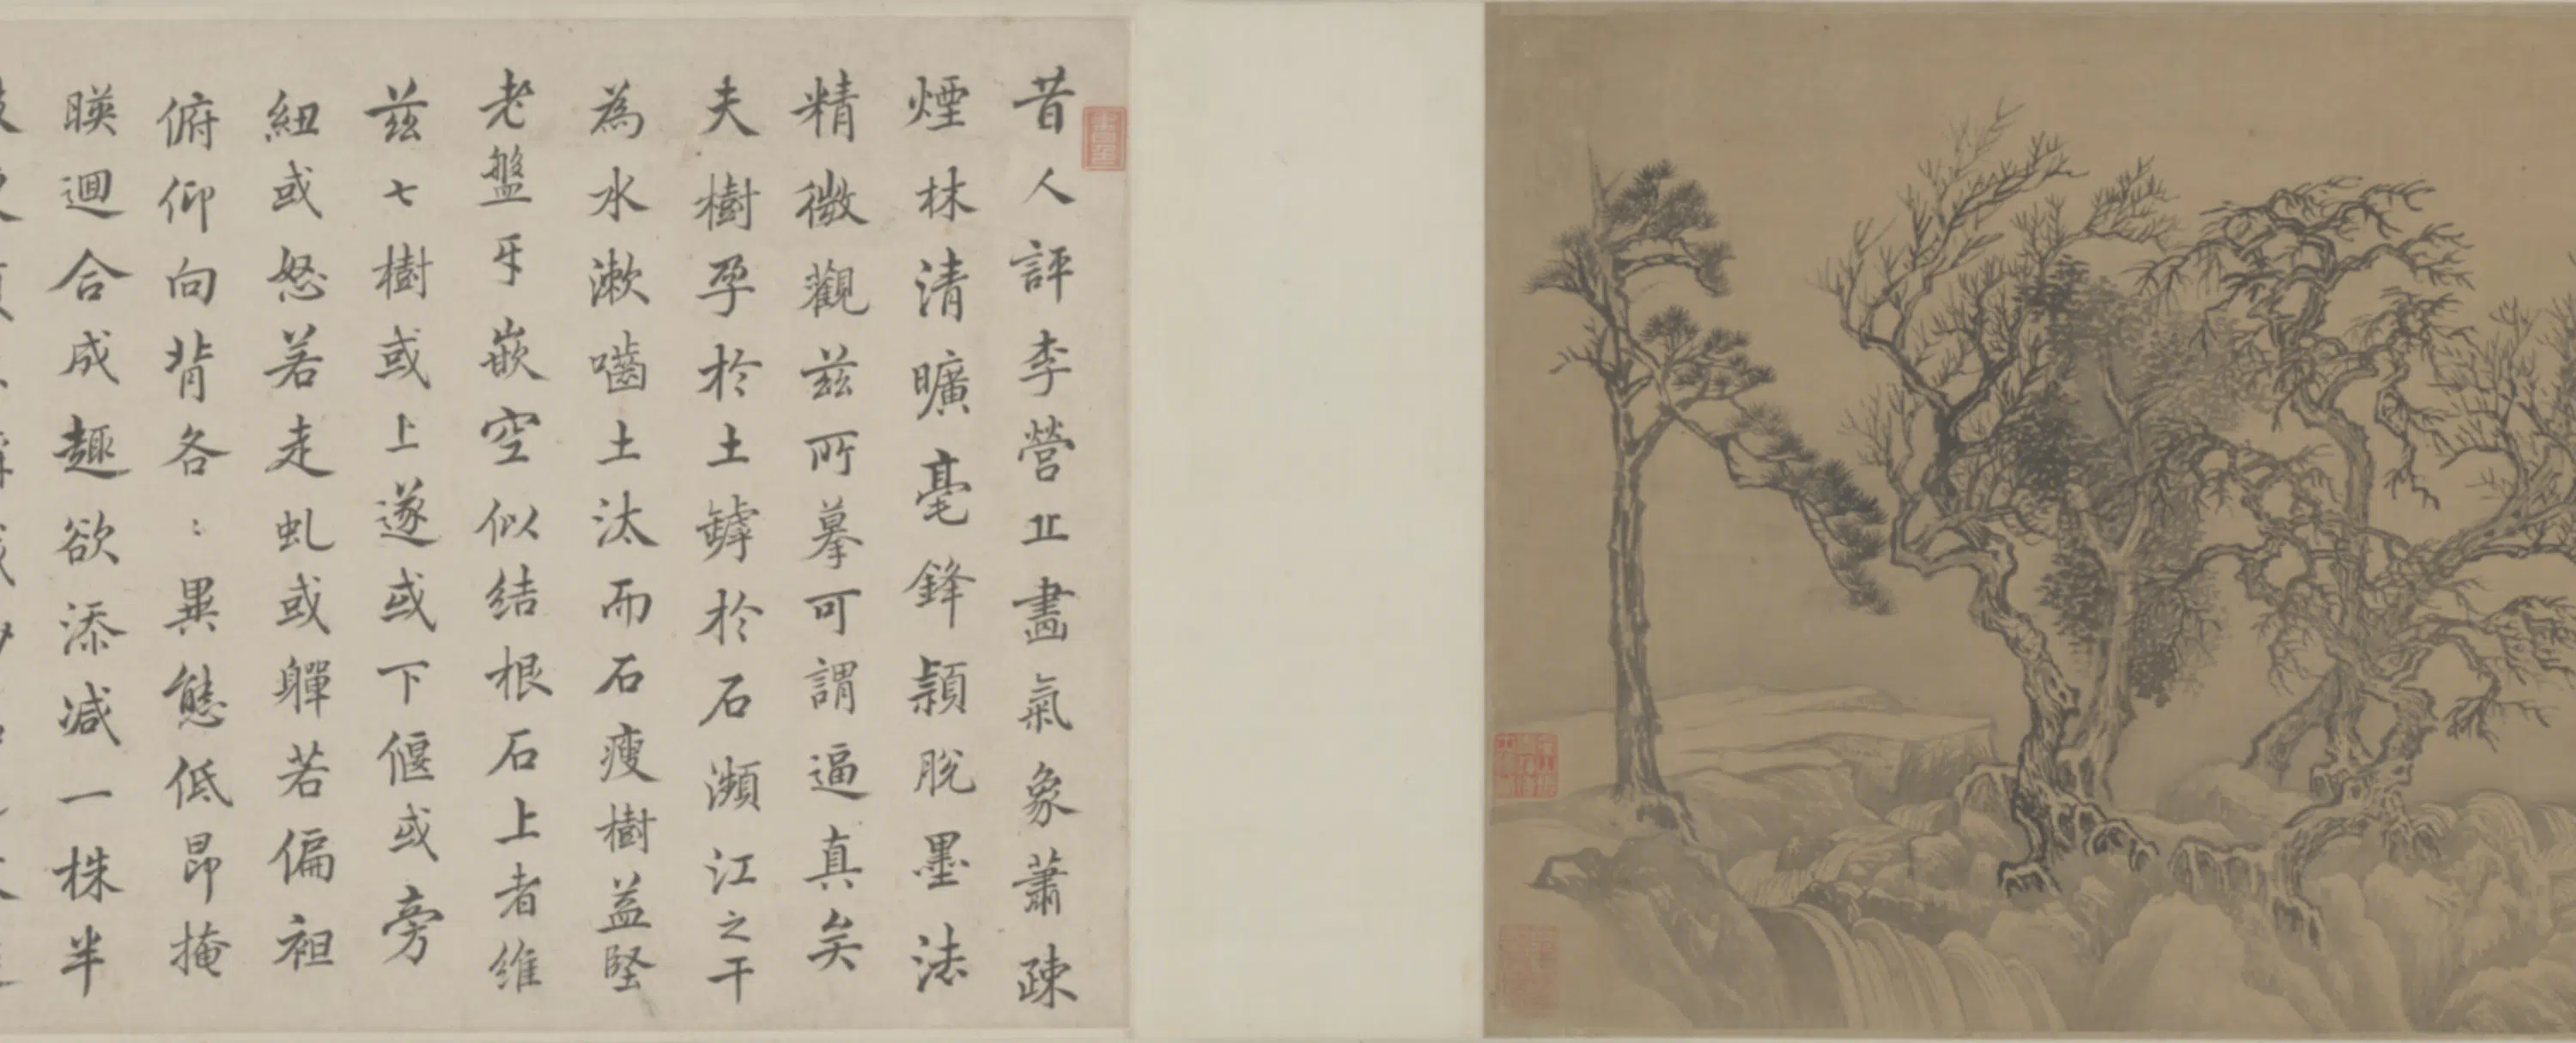 昔人評李營丘畫氣象蕭疎
煙林清曠毫鋒頴脫墨法
精微觀茲所摹可謂逼真矣
夫樹孕於土罅於石瀕江之干
為水漱嚙土汰而石瘦樹益堅
老盤牙嵌空似結根石上者維
茲七樹或上遂或下偃或旁
紐或怒若走虬或軃若偏袒
俯仰向背各〻異態低昂掩
暎迴合成趣欲添減一株半